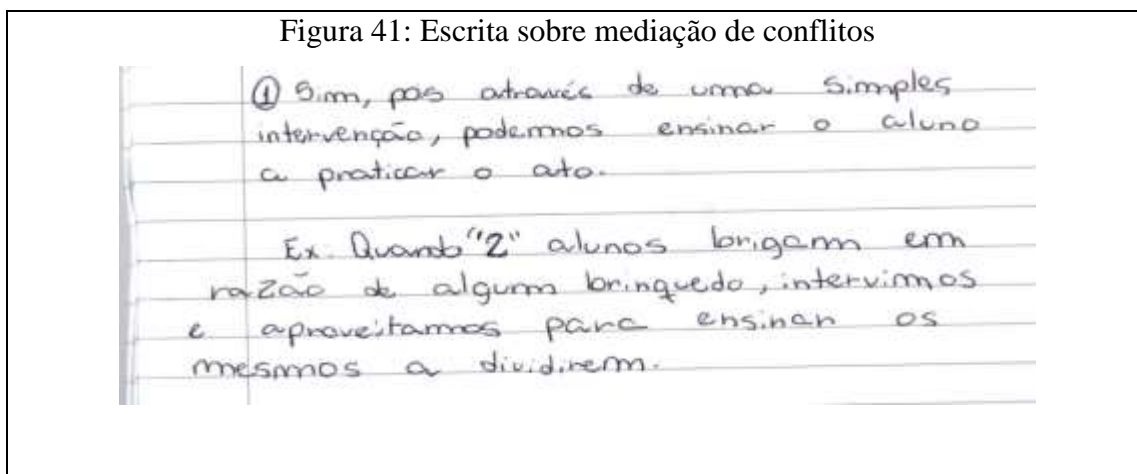 Figura 41: Escrita sobre mediação de conflitos
① Sim, pois através de uma simples
intervenção, podemos ensinar o aluno
a praticar o ato.
Ex: Quando "2" alunos brigam em
razão de algum brinquedo, intervimos
e aproveitamos para ensinar os
mesmos a dividirem.